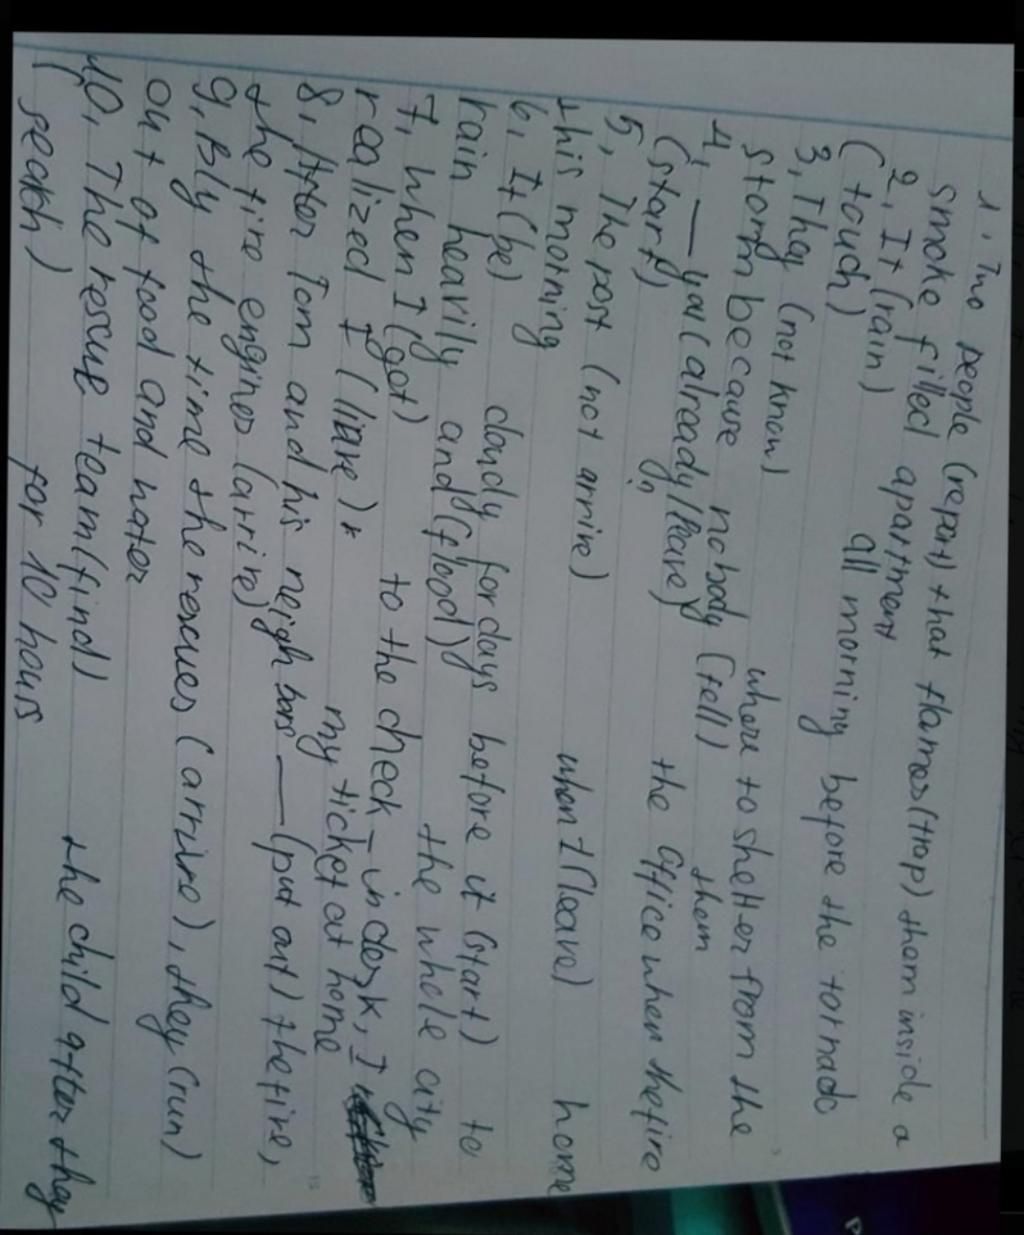 1. Two people (report) that flames (trap) them inside a
smoke filled apartment
2, It (rain) all morning before the tornado
(touch)
3, They (not know) where to shelter from the
storm because nobody (tell) them
4, — you (already/leave) the office when the fire
(start)
5, The post (not arrire) when I (leave) home
this morning
6, It (be) cloudy for days before it (start) to
rain hearily and (flood) the whole city
7, when I (get) to the check-in desk, I
realized I (liave) * my ticket at home
8, After Tom and his neighbors — (put out) the fire,
the fire engines (arrire)
9, Bly the time the rescues (arrire), they (run)
out of food and water
10, The rescue team (find) the child after they
(seach) for 10 hours